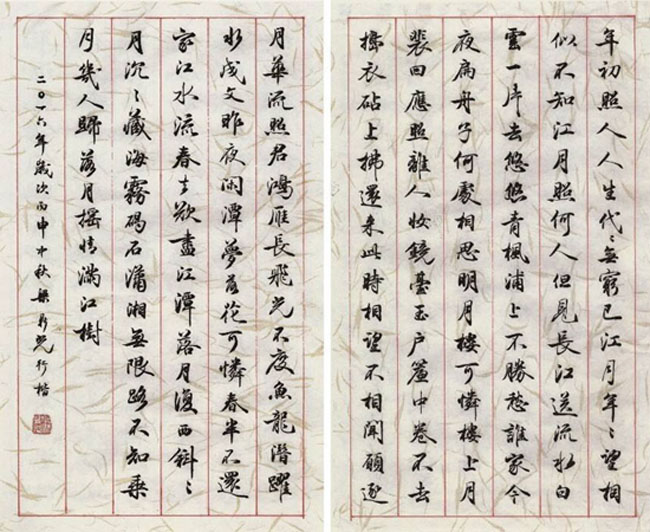 年初照人人生代〻無窮已江月年〻望相
似不知江月照何人但見長江送流水白
雲一片去悠悠青楓浦上不勝愁誰家今
夜扁舟子何處相思明月樓可憐樓上月
裴回應照離人妝鏡臺玉戶簾中卷不去
擣衣砧上拂還來此時相望不相聞願逐
月華流照君鴻雁長飛光不度魚龍潛躍
水成文昨夜閑潭夢落花可憐春半不還
家江水流春去欲盡江潭落月復西斜〻
月沉〻藏海霧碣石瀟湘無限路不知乘
月幾人歸落月搖情滿江樹
二〇一六年歲次丙申中秋梁光行楷